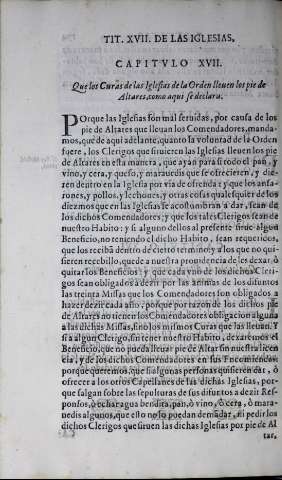 TIT. XVII. DE LAS IGLESIAS.
CAPITVLO XVII.
Que los Curas de las Iglesias de la Orden lleuen los pie de
Altares, como aqui se declara.
POrque las Iglesias son mal seruidas, por causa de los
pie de Altares que lleuan los Comendadores, manda-
mos, que de aqui adelante, quanto la volũtad de la Orden
fuere, los Clerigos que siruieren las Iglesias lleuen los pie
de Altares en esta manera, que ayan para si todo el pan, y
vino, y cera, y queso, y marauedis que se ofrecieren, y die-
ren dentro en la Iglesia por via de ofrenda: y que los ansa-
rones, y pollos, y lechones, y otras cosas qualesquier de los
diezmos que en las Iglesias se acostumbran a dar, sean de
los dichos Comendadores; y que los tales Clerigos sean de
nuestro Habito: y si algunos dellos al presente tiene algun
Beneficio, no teniendo el dicho Habito, sean requeridos,
que los recibã dentro de cierto termino, y a los que no qui-
sieren recebillo, quede a nuestra prouidencia de les dexar ò
quitar los Beneficios: y que cada vno de los dichos Cleri-
gos sean obligados à dezir por las animas de los difuntos
las treinta Missas que los Comendadores son obligados a
hazer dezir cada año, porque por razon de los dichos pie
de Altares no tienen los Comendadores obligacion alguna
a las dichas Missas, sino los mismos Curas que las lleuan. Y
si a algun Clerigo, sin tener nuestro Habito, dexaremos el
Beneficio, que no pueda lleuar pie de Altar sin nuestra licen
cia, y de los dichos Comendadores en sus Encomiendas:
porque queremos, que si algunas personas quisieren dar, ò
ofrecer a los otros Capellanes de las dichas Iglesias, por-
que salgan sobre las sepulturas de sus difuntos a dezir Res-
ponsos, ò echar agua bendita, pan, ò vino, ò cera, ò mara-
uedis algunos, que esto no lo puedan demãdar, ni pedir los
dichos Clerigos que siruen las dichas Iglesias por pie de Al
tar,